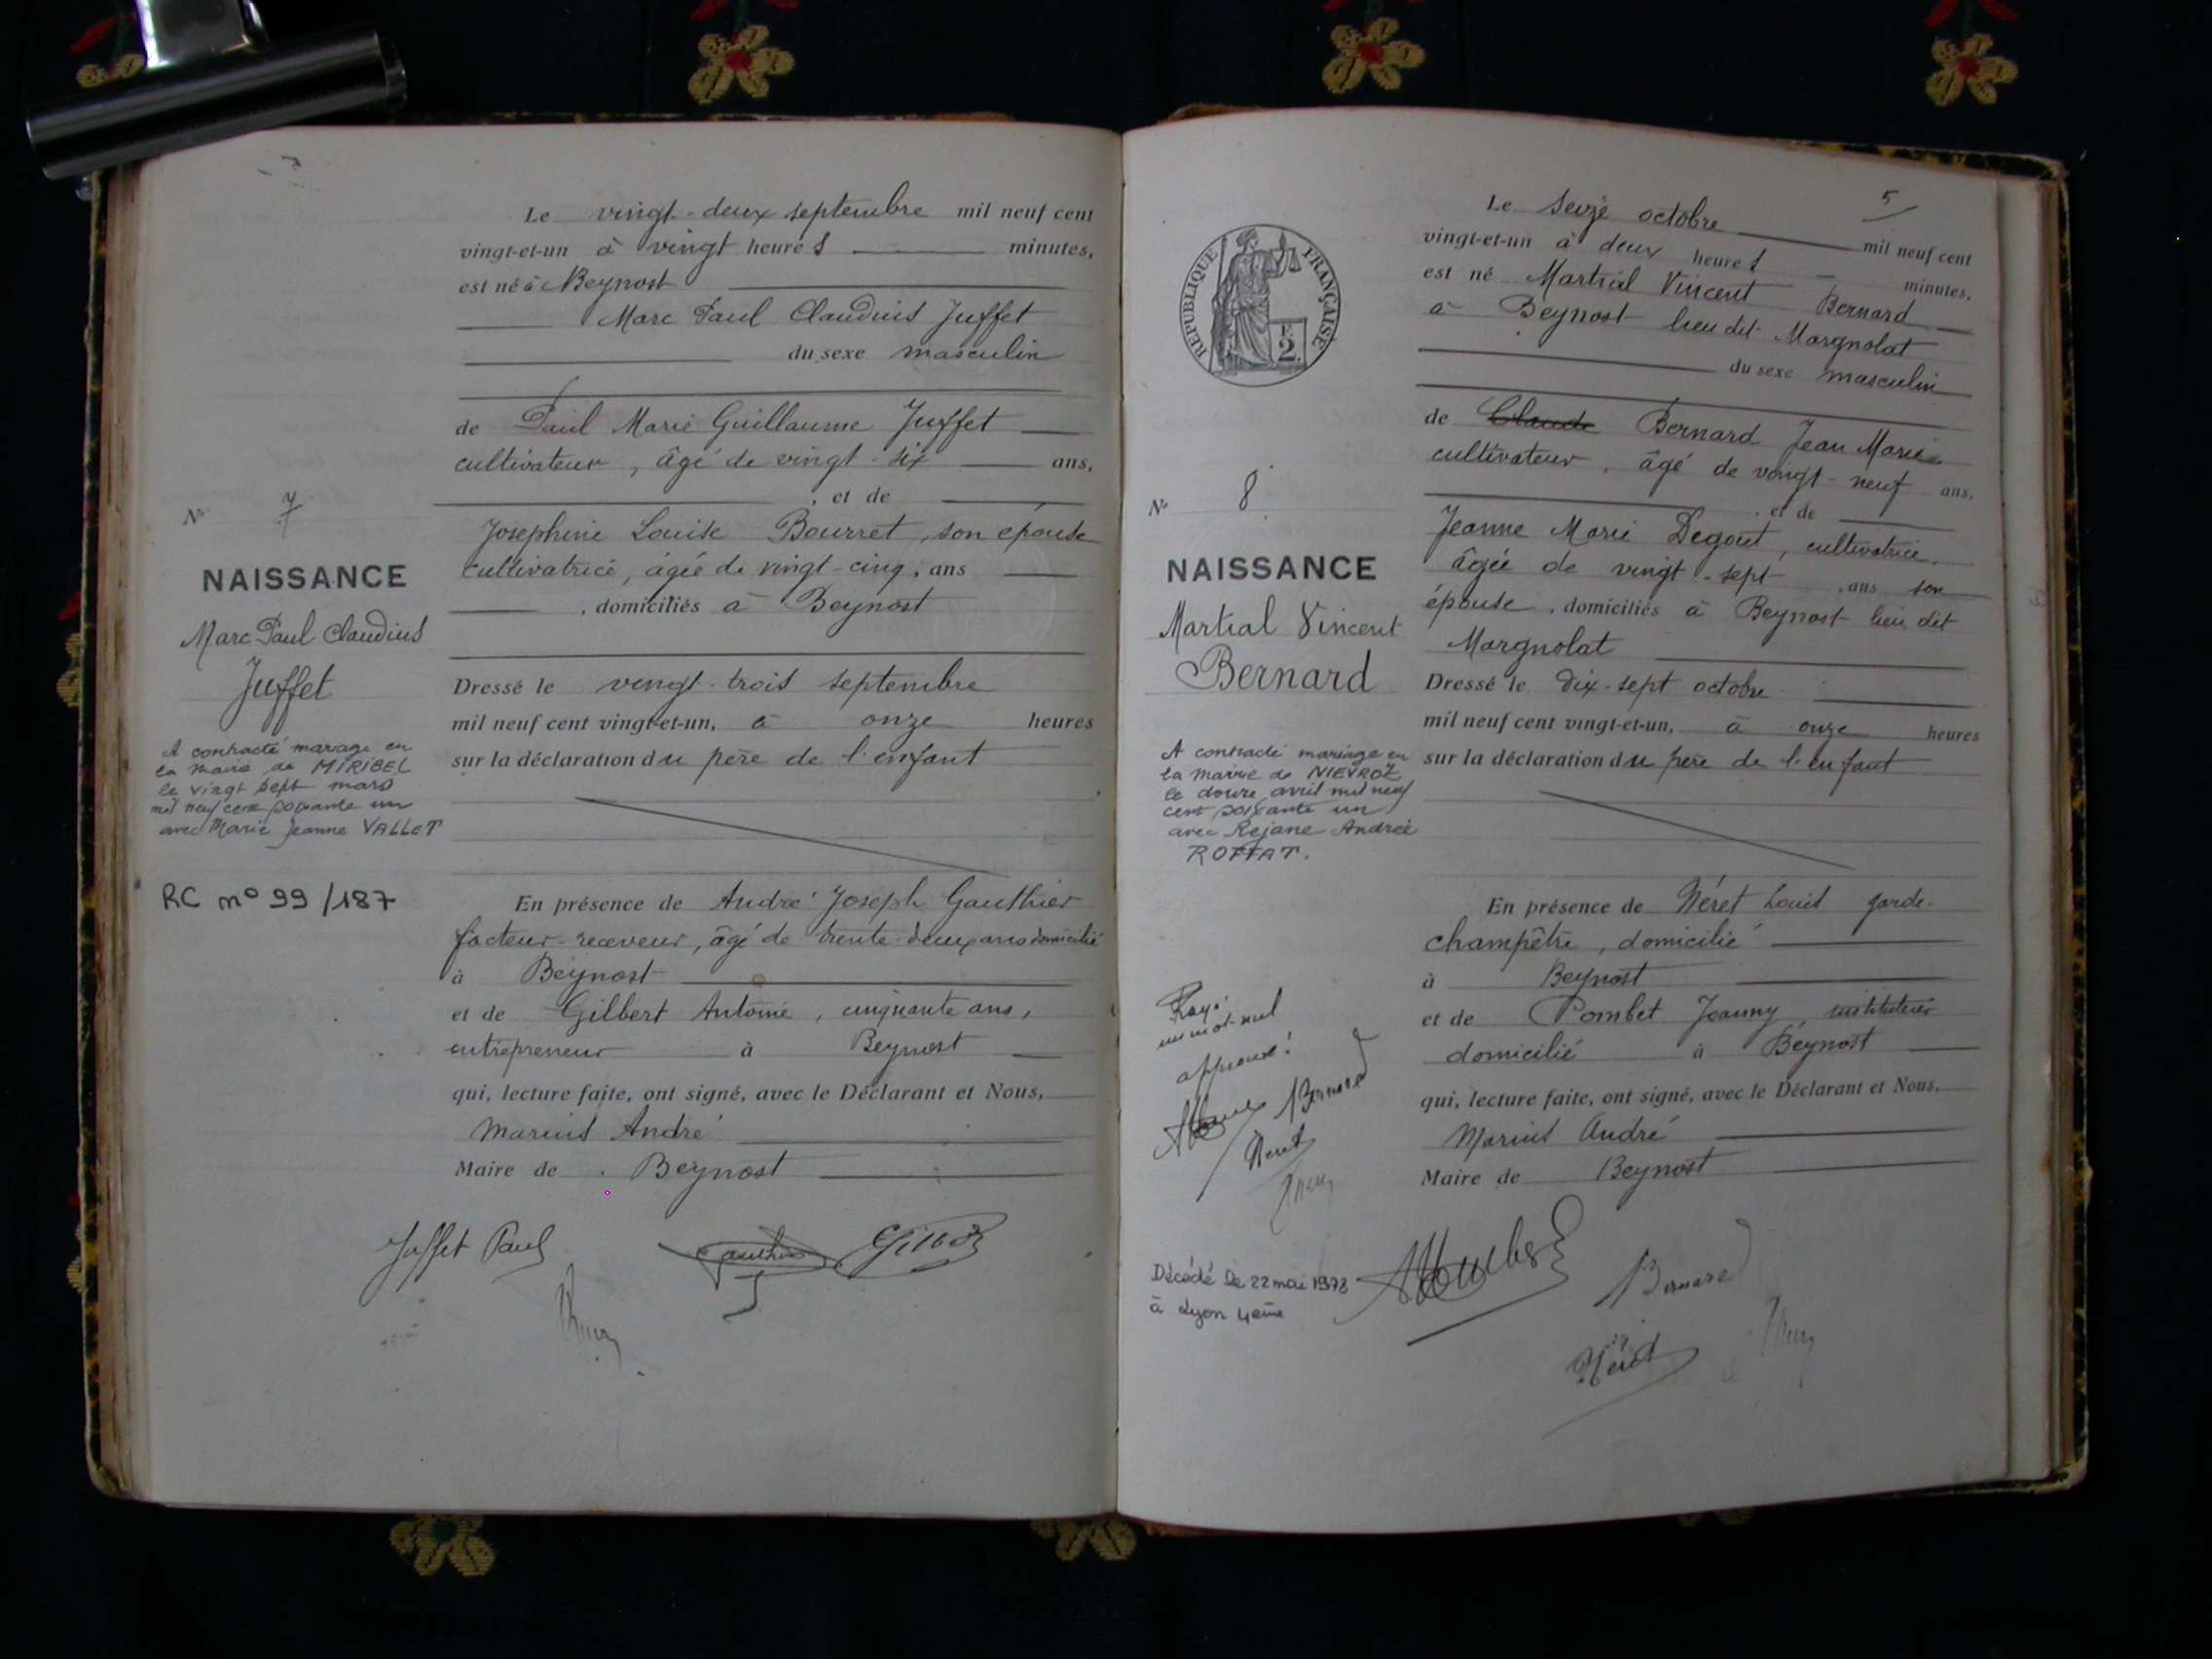 Le vingt-deux septembre mil neuf cent
vingt-et-un à vingt heures minutes,
est né à Beynost
Marc Paul Claudius Juffet
du sexe masculin
de Paul Marie Guillaume Juffet
cultivateur, âgé de vingt-six ans,
, et de
Josephine Louise Bourret, son épouse
cultivatrice, âgée de vingt-cinq, ans
, domiciliés à Beynost
Dressé le vingt-trois septembre
mil neuf cent vingt-et-un, à onze heures
sur la déclaration du père de l'enfant
En présence de André Joseph Gauthier
facteur-receveur, âgé de trente-deux ans domicilié
à Beynost
et de Gilbert Antoine, cinquante ans,
entrepreneur à Beynost
qui, lecture faite, ont signé, avec le Déclarant et Nous,
Marius André
Maire de Beynost
Juffet Paul
Gauthier
Gilbert
No 7
NAISSANCE
Marc Paul Claudius
Juffet
A contracté mariage en
la mairie de MIRIBEL
le vingt sept mars
mil neuf cent soixante un
avec Marie Jeanne VALLET
RC n° 99/187
5
Le seize octobre mil neuf cent
vingt-et-un à deux heures minutes,
est né Martial Vincent Bernard
à Beynost lieu dit Margnolat
du sexe masculin
de Claude Bernard Jean Marie
cultivateur, âgé de vingt-neuf ans,
, et de
Jeanne Marie Degout, cultivatrice,
âgée de vingt-sept, ans son
épouse, domiciliés à Beynost lieu dit
Margnolat
Dressé le dix-sept octobre
mil neuf cent vingt-et-un, à onze heures
sur la déclaration du père de l'enfant
En présence de Néret Louis garde-
champêtre, domicilié
à Beynost
et de Pombet Joanny, instituteur
domicilié à Beynost
qui, lecture faite, ont signé, avec le Déclarant et Nous,
Marius André
Maire de Beynost
Bernard
Néret
REPUBLIQUE FRANÇAISE
F.
2.
No 8
NAISSANCE
Martial Vincent
Bernard
A contracté mariage en
la mairie de NIEVROZ
le douze avril mil neuf
cent soixante un
avec Rejane Andrée
ROFFAT.
Rayé
un mot nul
approuvé!
Bernard
Néret
Décédé le 22 mai 1978
à Lyon 4ème